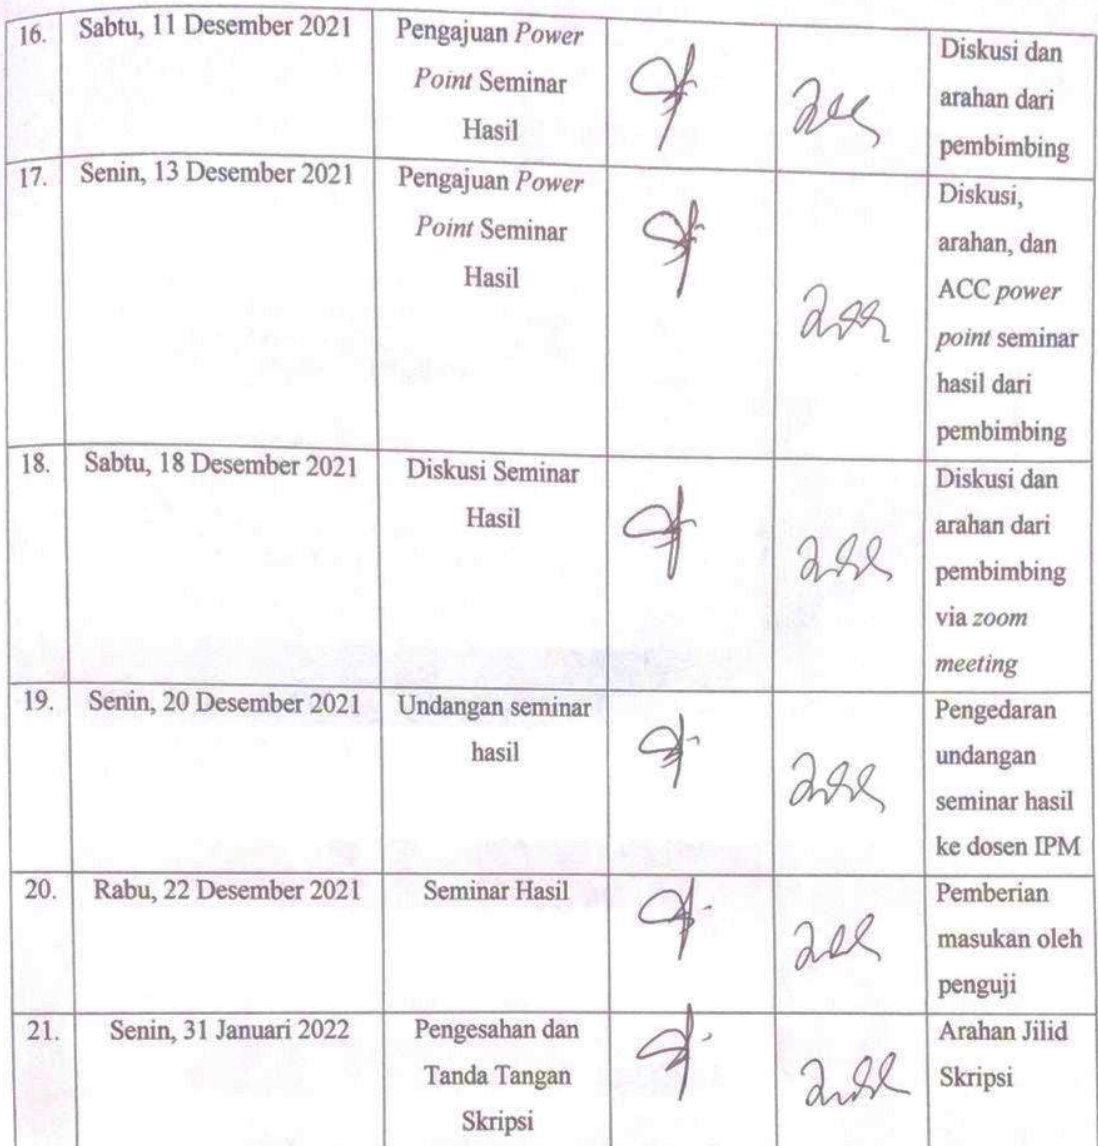 16.
Sabtu, 11 Desember 2021
Pengajuan Power
Point Seminar
Hasil
Diskusi dan
arahan dari
pembimbing
17.
Senin, 13 Desember 2021
Pengajuan Power
Point Seminar
Hasil
Diskusi,
arahan, dan
ACC power
point seminar
hasil dari
pembimbing
18.
Sabtu, 18 Desember 2021
Diskusi Seminar
Hasil
Diskusi dan
arahan dari
pembimbing
via zoom
meeting
19.
Senin, 20 Desember 2021
Undangan seminar
hasil
Pengedaran
undangan
seminar hasil
ke dosen IPM
20.
Rabu, 22 Desember 2021
Seminar Hasil
Pemberian
masukan oleh
penguji
21.
Senin, 31 Januari 2022
Pengesahan dan
Tanda Tangan
Skripsi
Arahan Jilid
Skripsi